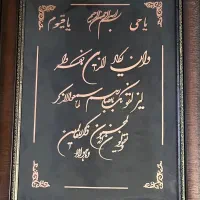 یا حی بسم الله الرحمن الرحیم یا قیوم
وان یکاد الذین کفروا
لیزلقونک بابصارهم لما سمعوا الذکر
و یقولون انه لمجنون
و ما هو الا ذکر للعالمین